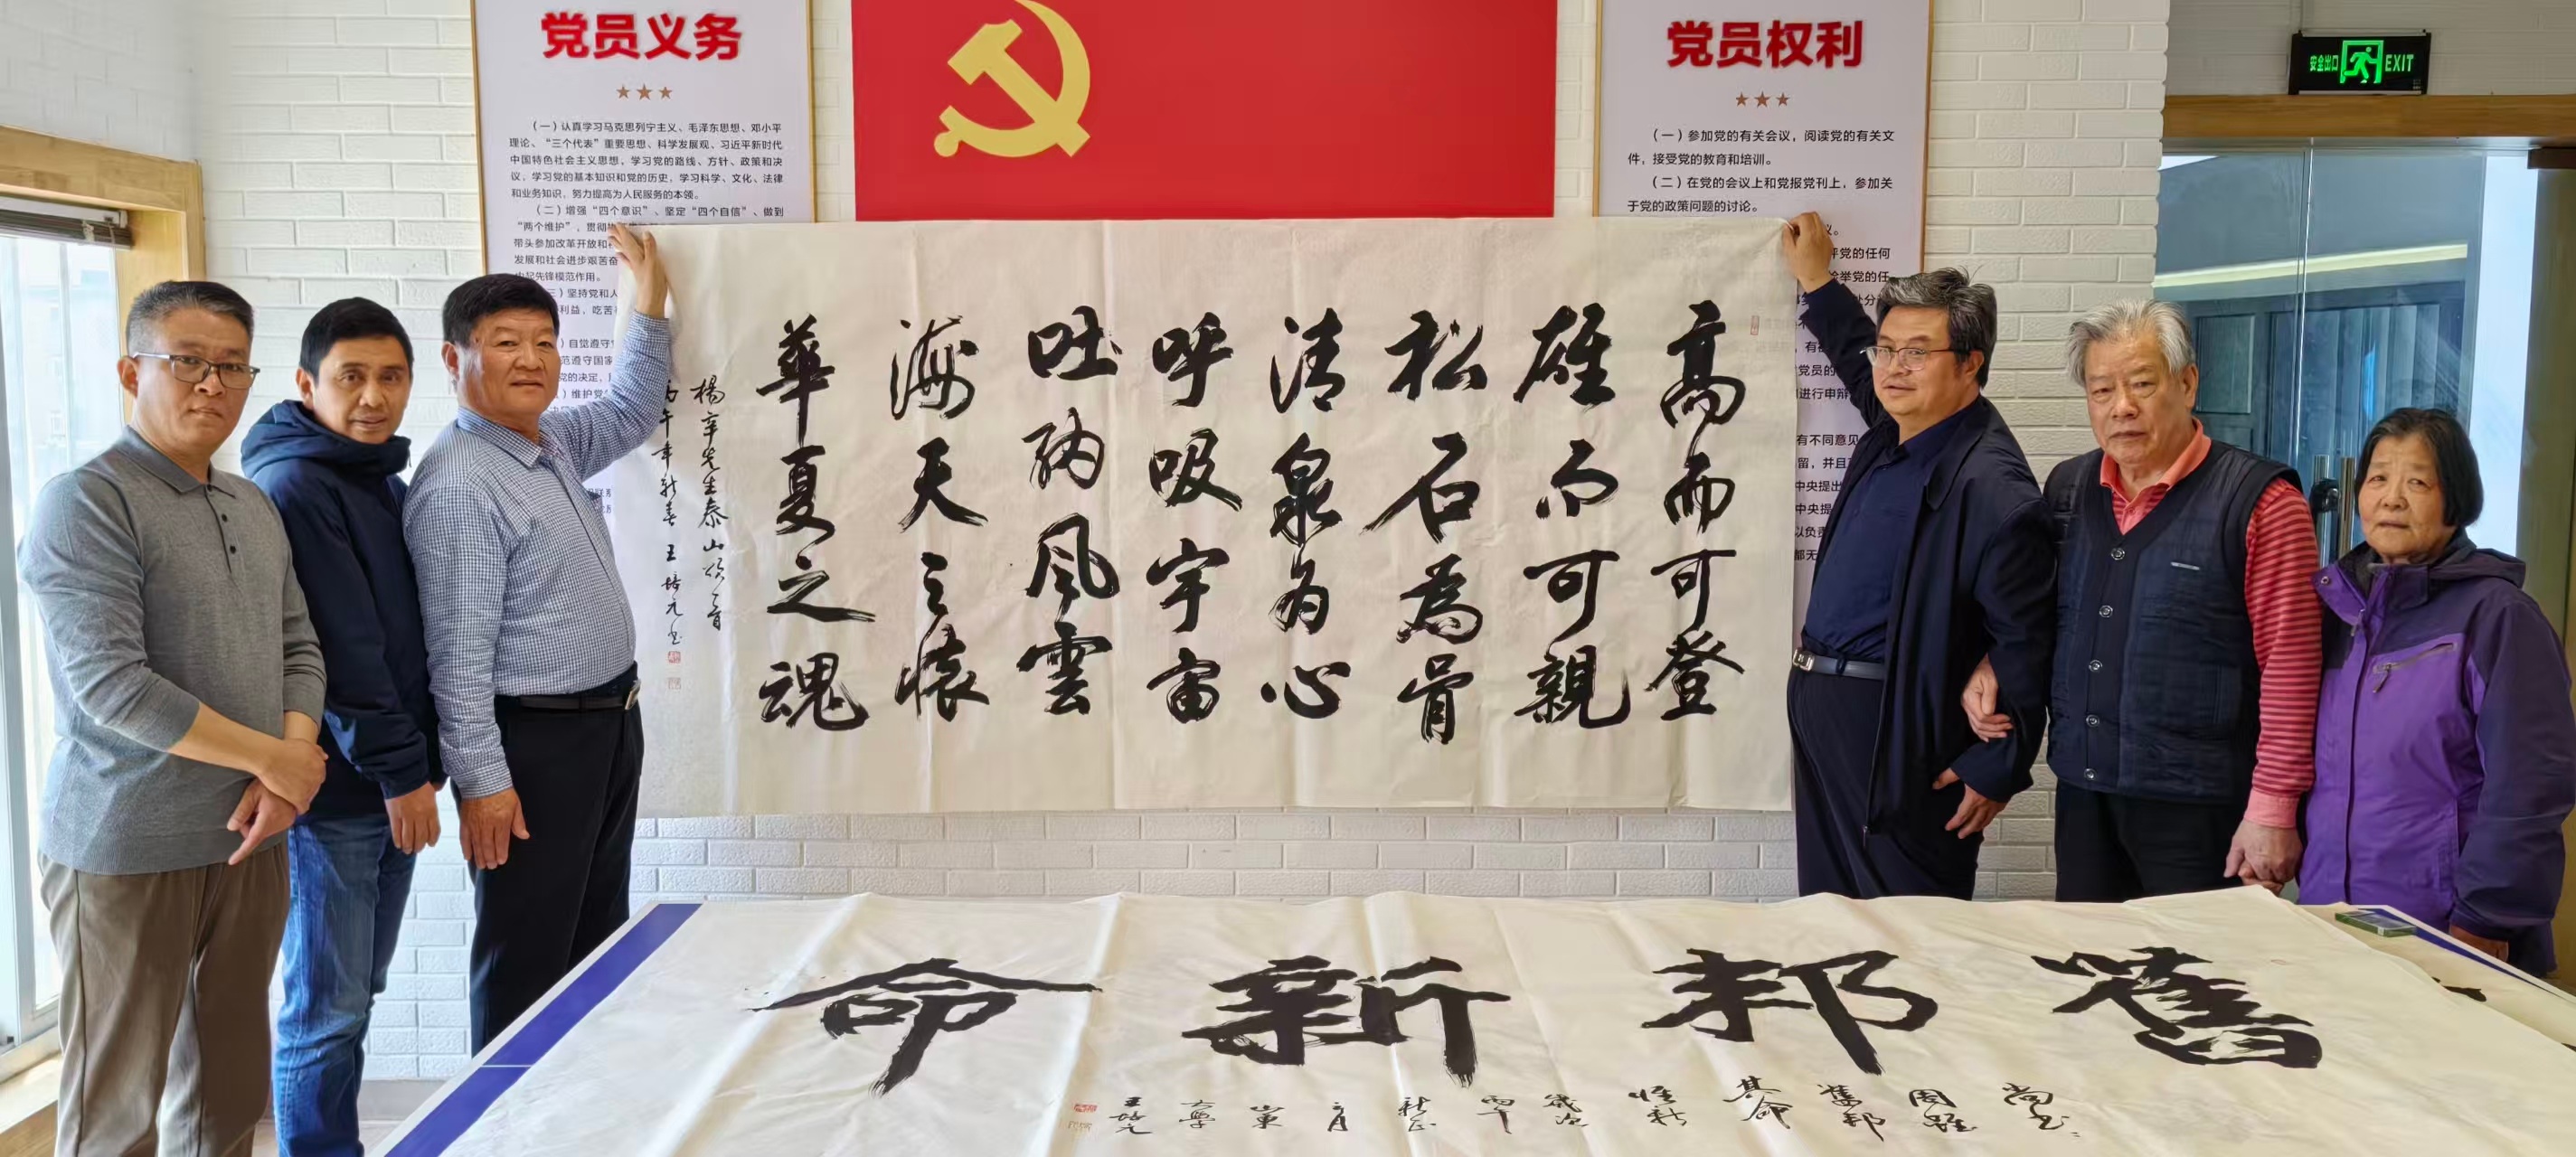 党员义务
（一）认真学习马克思列宁主义、毛泽东思想、邓小平
理论、“三个代表”重要思想、科学发展观、习近平新时代
中国特色社会主义思想，学习党的路线、方针、政策和决
议，学习党的基本知识和党的历史，学习科学、文化、法律
和业务知识，努力提高为人民服务的本领。
（二）增强“四个意识”、坚定“四个自信”、做到
“两个维护”，贯彻
带头参加改革开放和
发展和社会进步艰苦奋
先锋模范作用。
）坚持党和人
利益，吃苦
）自觉遵守
范遵守国家
党的决定，
）维护党
党员权利
（一）参加党的有关会议，阅读党的有关文
件，接受党的教育和培训。
（二）在党的会议上和党报党刊上，参加关
于党的政策问题的讨论。
议。
评党的任何
举党的任
处分
党员的
进行申辩
有不同意见
留，并且
中央提出
中央提
以负责
都无
安全出口 EXIT
高而可登
雄而可親
松石為骨
清泉为心
呼吸宇宙
吐纳风雲
海天之懷
華夏之魂
楊辛先生泰山颂一首
丙午年新春 王培元书
舊邦新命
尚书
周雖
舊邦
其命
惟新
歲次
丙午
新正
山東
大學
王培元